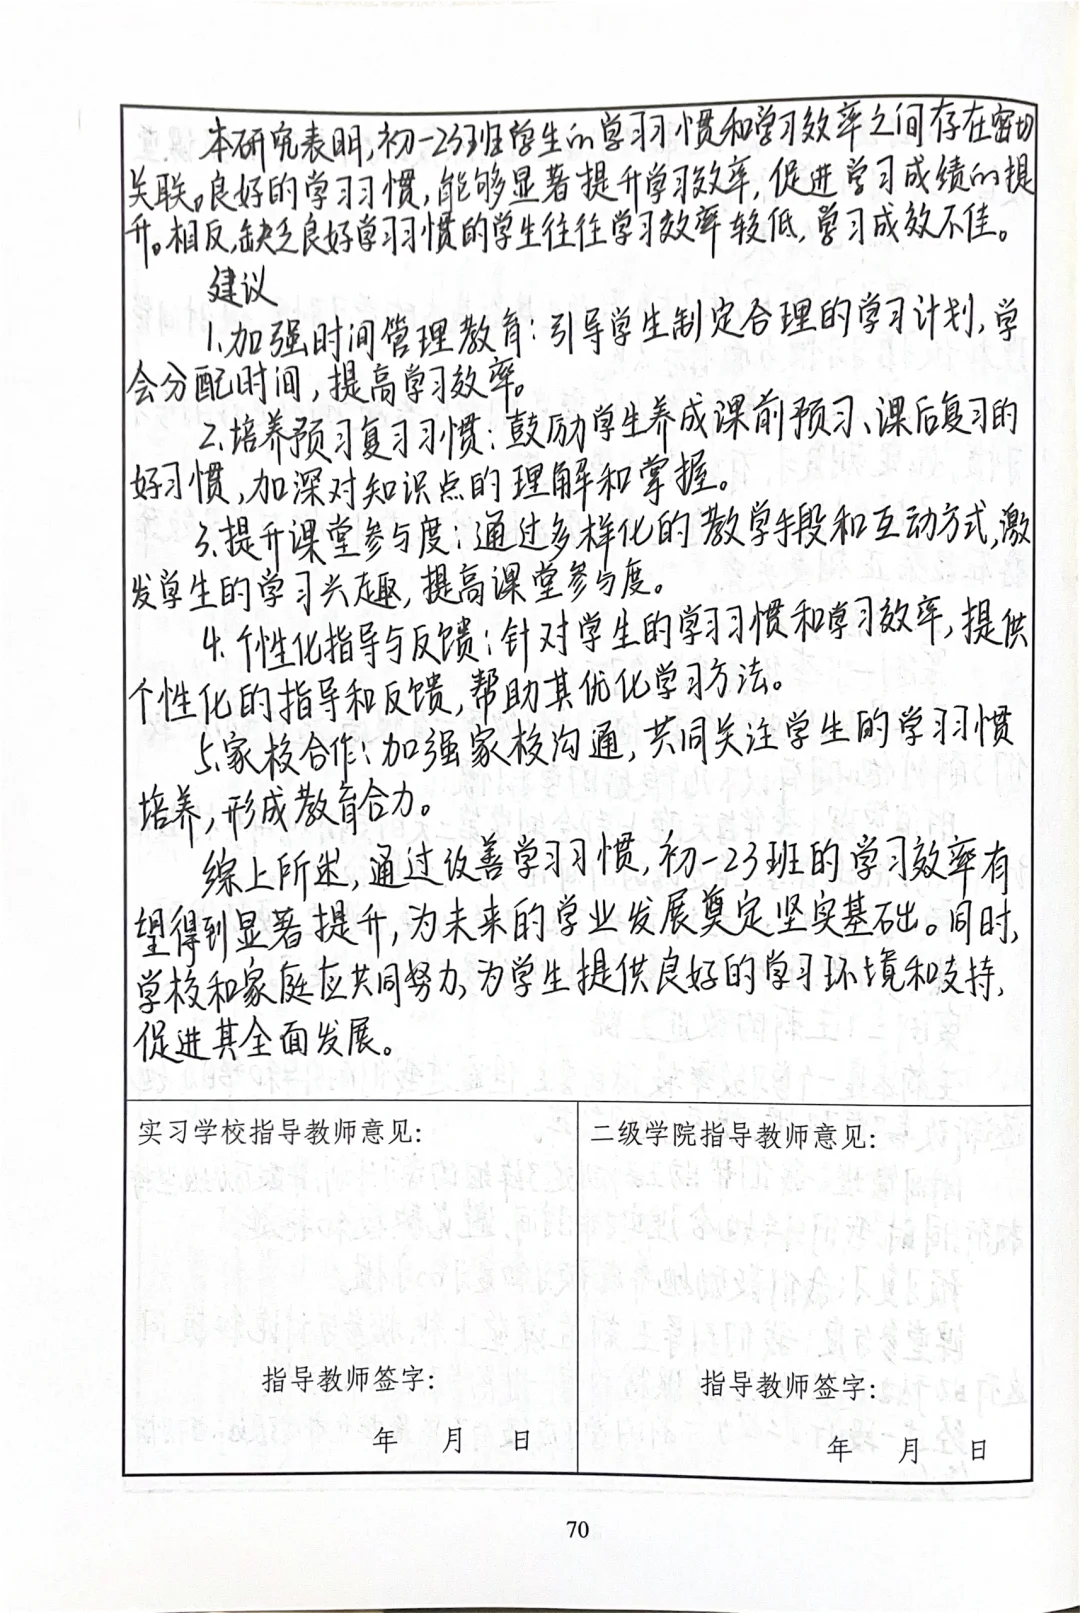 本研究表明,初一23班学生的学习习惯和学习效率之间存在密切
关联。良好的学习习惯,能够显著提升学习效率,促进学习成绩的提
升。相反,缺乏良好学习习惯的学生往往学习效率较低,学习成效不佳。
建议
1.加强时间管理教育:引导学生制定合理的学习计划,学
会分配时间,提高学习效率。
2.培养预习复习习惯:鼓励学生养成课前预习、课后复习的
好习惯,加深对知识点的理解和掌握。
3.提升课堂参与度:通过多样化的教学手段和互动方式,激
发学生的学习兴趣,提高课堂参与度。
4.个性化指导与反馈:针对学生的学习习惯和学习效率,提供
个性化的指导和反馈,帮助其优化学习方法。
5.家校合作:加强家校沟通,共同关注学生的学习习惯
培养,形成教育合力。
综上所述,通过改善学习习惯,初一23班的学习效率有
望得到显著提升,为未来的学业发展奠定坚实基础。同时,
学校和家庭应共同努力,为学生提供良好的学习环境和支持,
促进其全面发展。
实习学校指导教师意见:
指导教师签字:
年 月 日
二级学院指导教师意见:
指导教师签字:
年 月 日
70